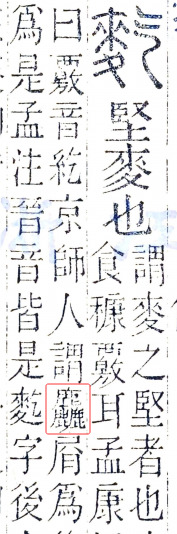 麧
堅麥也
謂麥之堅者也
食穅覈耳孟康
曰覈音紇京師人謂麤屑爲
爲是孟注晉音皆是麧字後